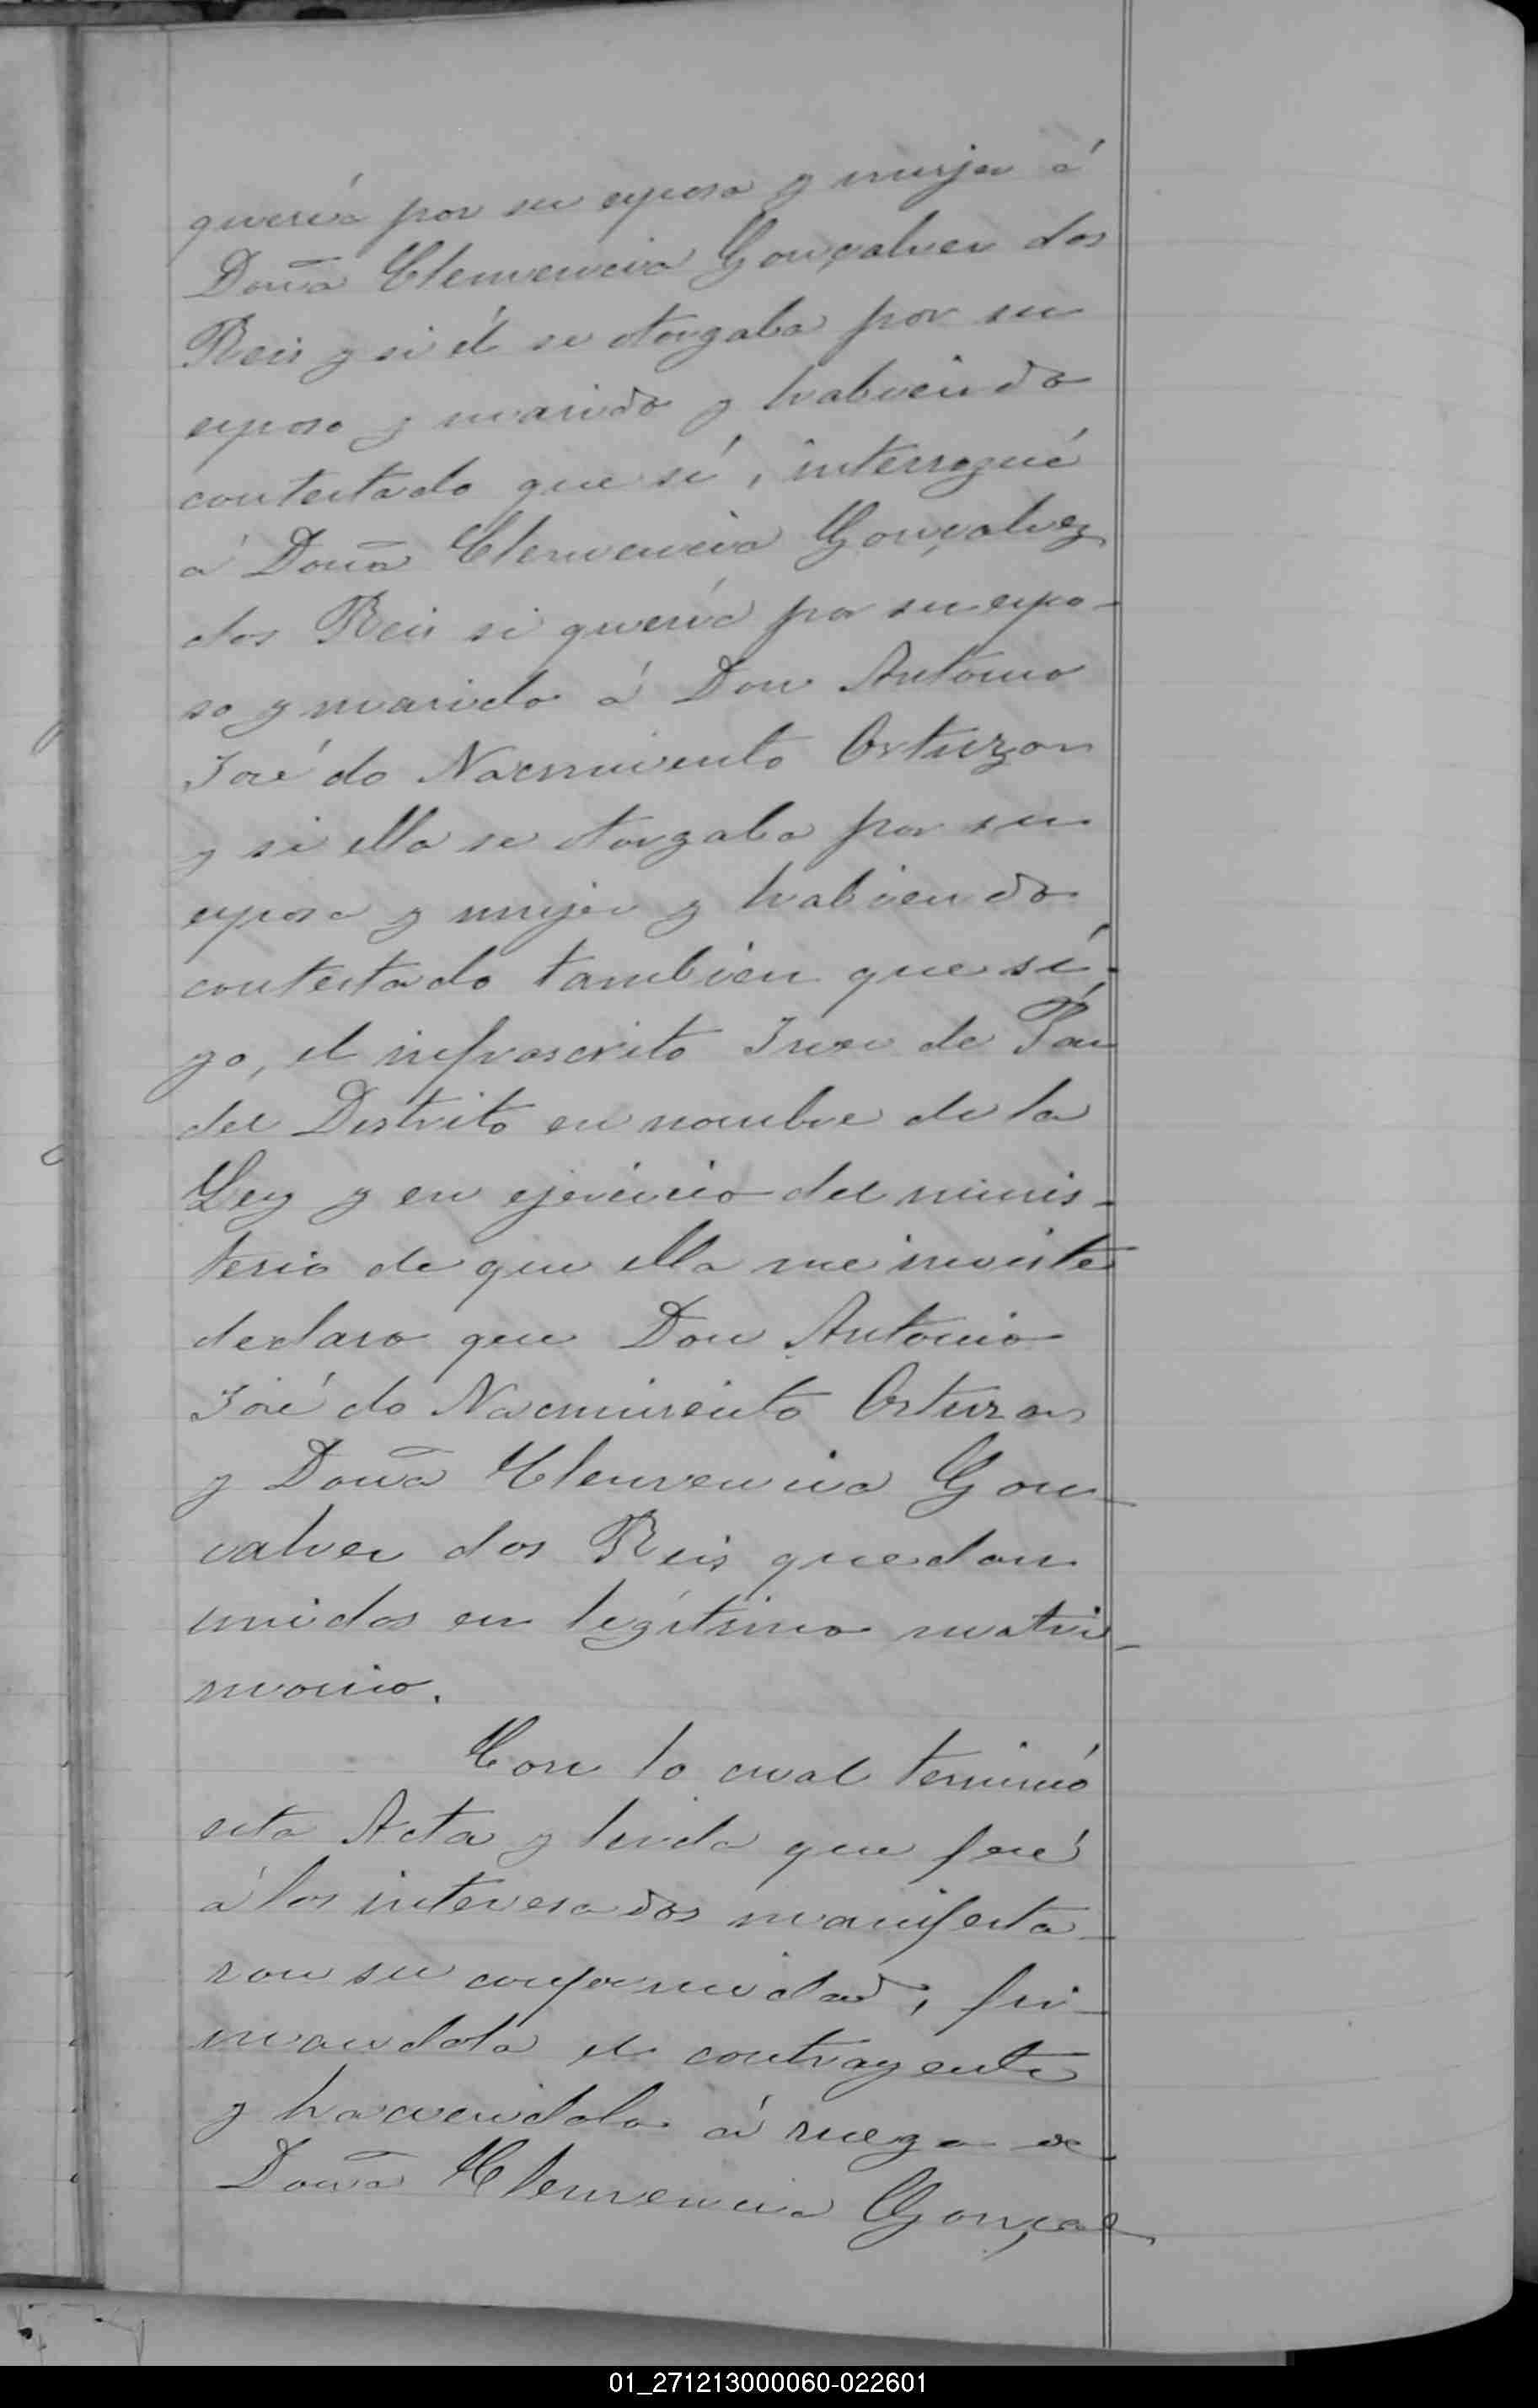 quería por su esposa y mujer á
Doña Clemencia Gonçalves dos
Reis y si él se otorgaba por su
esposo y marido y habiendo
contestado que sí, interrogué
á Doña Clemencia Gonçalvez
dos Reis si quería por su espo-
so y marido á Don Antonio
José do Nacimiento
y si ella se otorgaba por su
esposa y mujer y habiendo
contestado tambien que sí,
yo, el infrascrito Juez de Paz
del Distrito en nombre de la
Ley y en ejercicio del minis-
terio de que ella me inviste
declaro que Don Antonio
José do Nacimiento
y Doña Clemencia Gon-
calves dos Reis quedan
unidos en legítimo matri-
monio.
Con lo cual terminó
esta Acta y leida que fué
á los interesados manifesta-
ron su conformidad, fir-
mandola el contrayente
y haciendolo á ruego de
Doña Clemencia Gonçal
01_271213000060-022601